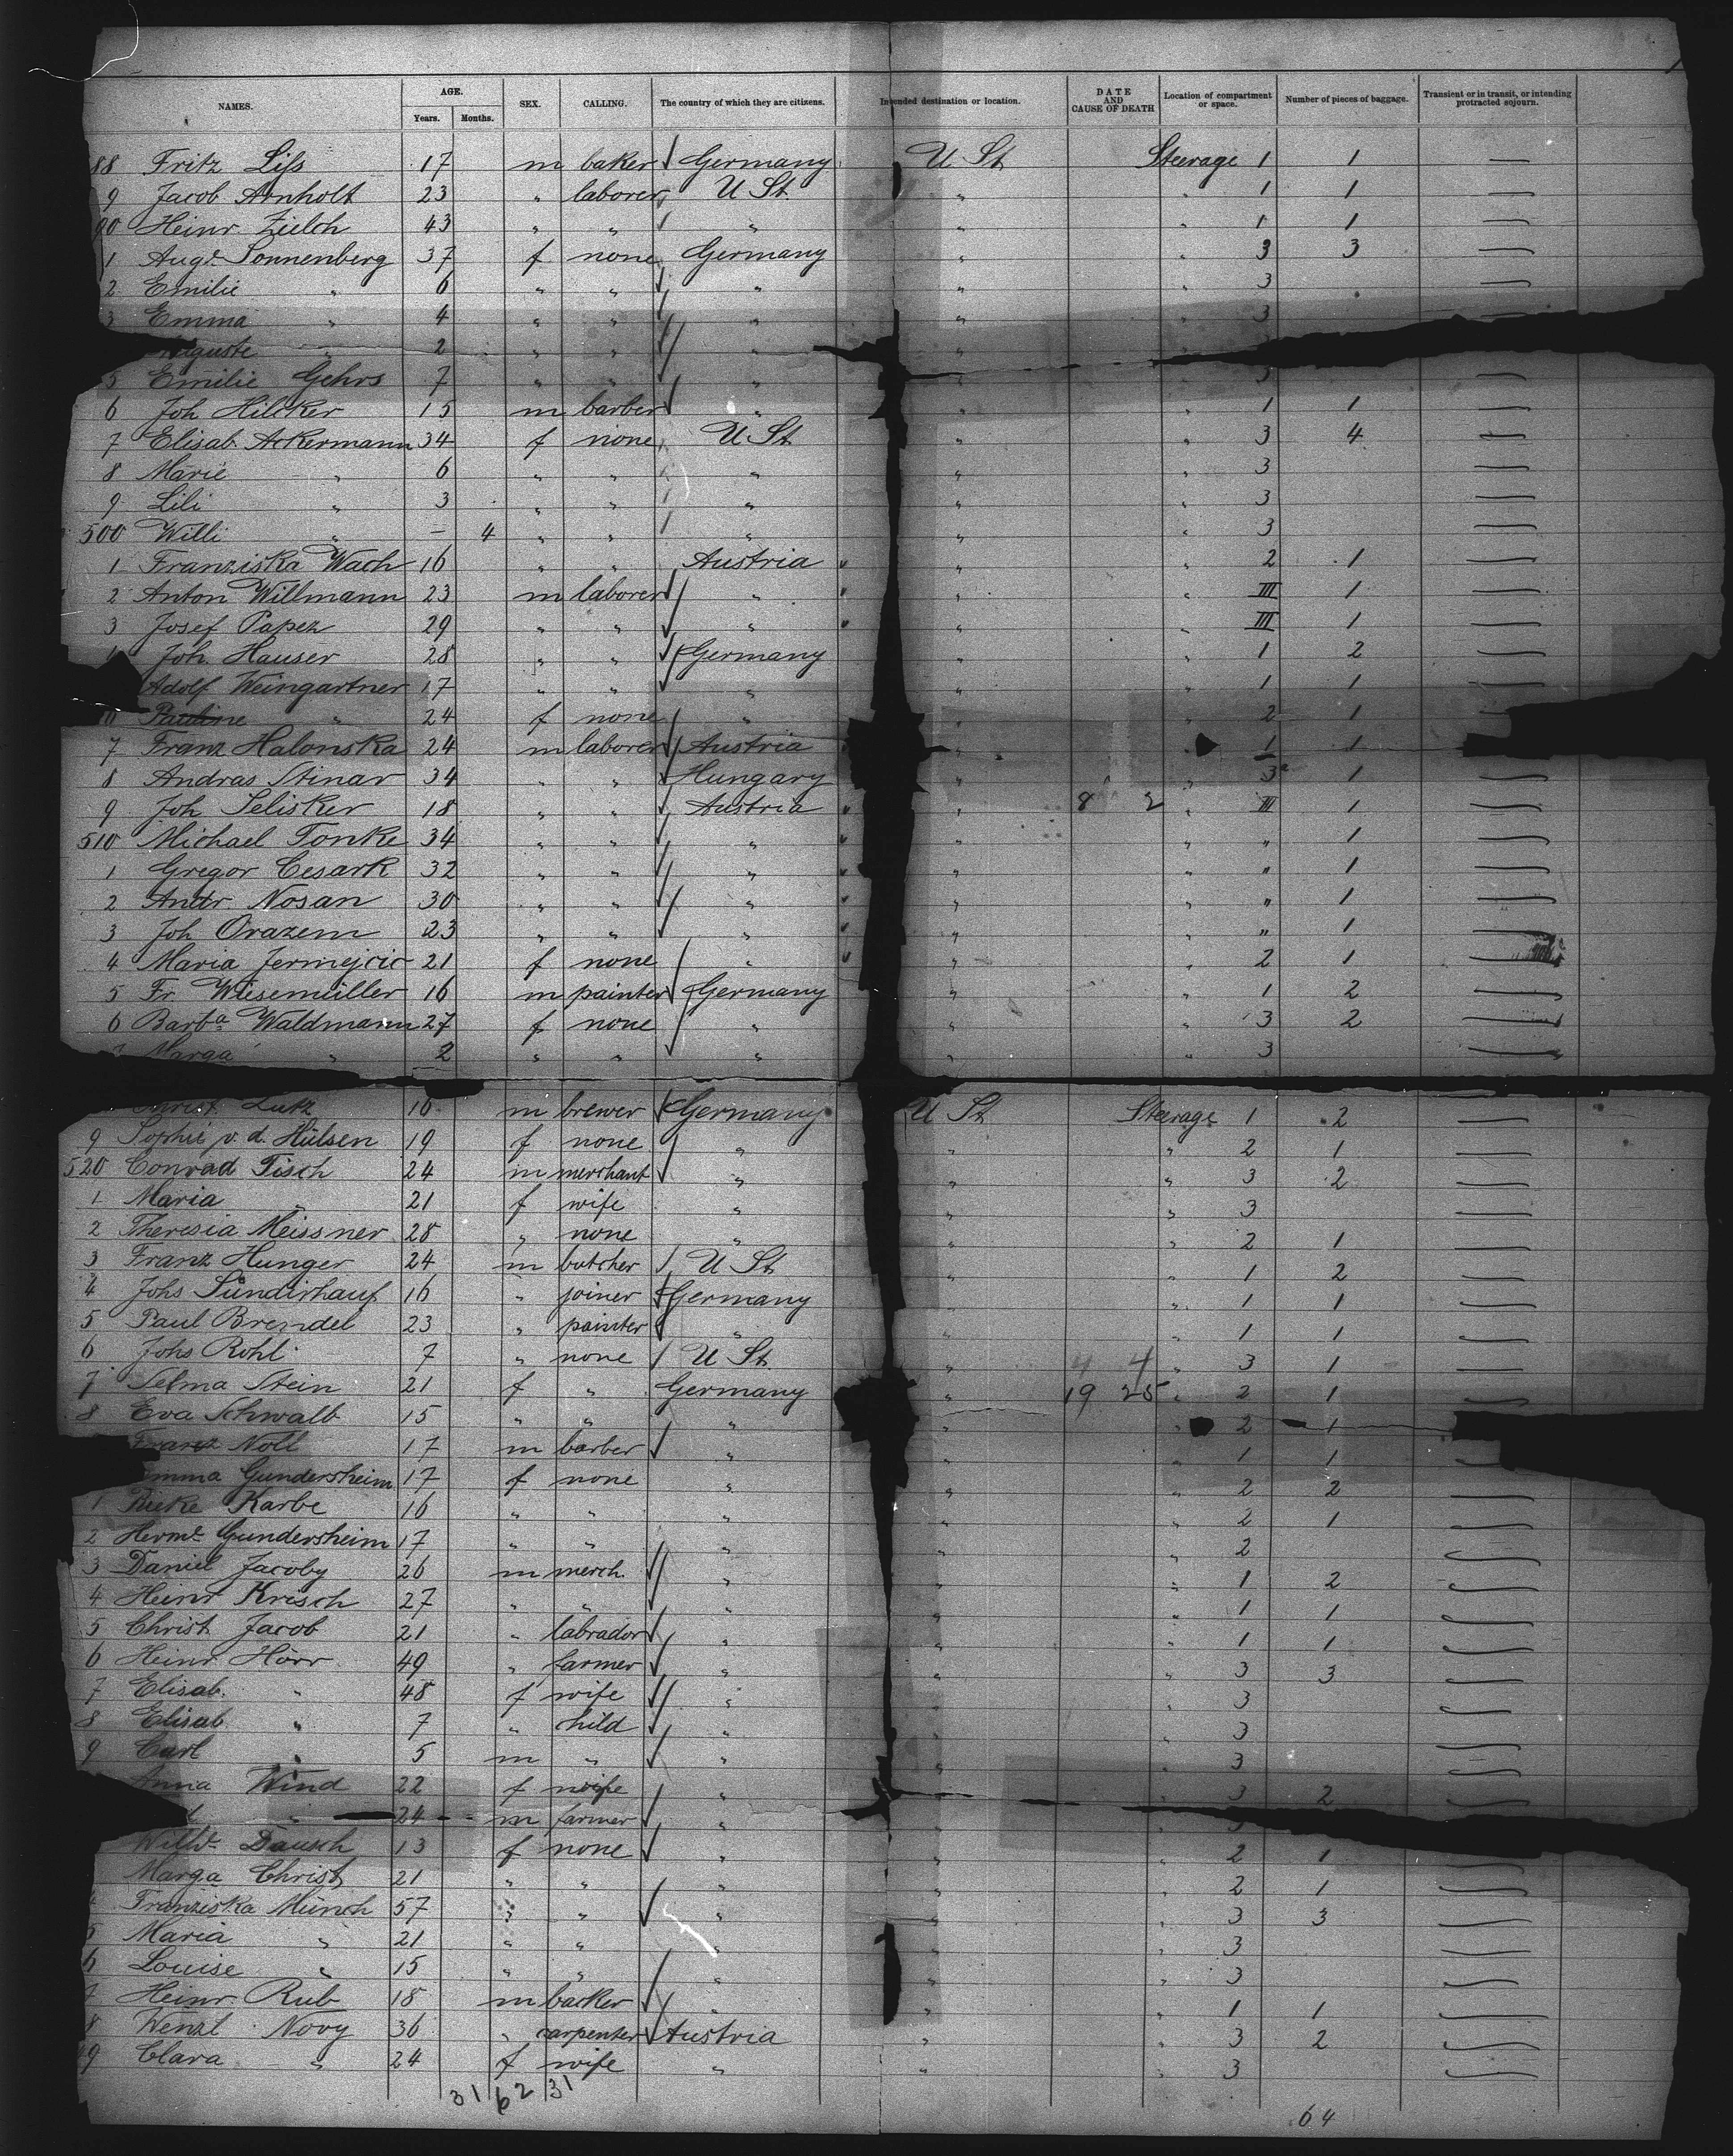 NAMES. AGE. SEX. CALLING. The country of which they are citizens. Intended destination or location. DATE AND CAUSE OF DEATH Location of compartment or space. Number of pieces of baggage. Transient or in transit, or intending protracted sojourn.
Years. Months.
88 Fritz Liss 17 m baker Germany U St. Steerage 1 1 —
9 Jacob Arnholt 23 " laborer U St. " " 1 1 —
90 Heinr Zielch 43 " " " " " 1 1 —
1 Augte Sonnenberg 37 f none Germany " " 3 3 —
2 Emilie " 6 " " " " " 3 —
3 Emma " 4 " " " " " 3 —
Auguste " 2 " " "
5 Emilie Gehrs 7 " " " " 3 —
6 Joh Hilcker 15 m barber " " " 1 1 —
7 Elisab. Ackermann 34 f none U St " " 3 4 —
8 Marie " 6 " " " " " 3 —
9 Lili " 3 " " " " " 3 —
500 Willi " — 4 " " " " " 3 —
1 Franziska Wach 16 " " Austria " " 2 1 —
2 Anton Willmann 23 m laborer " " " III 1 —
3 Josef Papez 29 " " " " " III 1 —
Joh. Hauser 28 " " Germany " " 1 2 —
Adolf Weingartner 17 " " " " " 1 1 —
6 Pauline " 24 f none " " " 2 1 —
7 Franz Halonska 24 m laborer Austria " 1 1
8 Andras Stinar 34 " " Hungary " " 3a 1 —
9 Joh Selisker 18 " " Austria " 8 2 " III 1 —
510 Michael Tonke 34 " " " " " " 1 —
1 Gregor Cesark 32 " " " " " " 1 —
2 Andr Nosan 30 " " " " " " 1 —
3 Joh Orazem 23 " " " " " " 1 —
4 Maria Jermejcic 21 f none " " " 2 1 —
5 Fr. Wiesemüller 16 m painter Germany " " 1 2 —
6 Barba Waldmann 27 f none " " " 3 2 —
7 Marga " 2 " " " " " 3 —
Christ. Lutz 16 m brewer Germany U St Steerage 1 2 —
9 Sophie v. d. Hülsen 19 f none " " " 2 1 —
520 Conrad Tisch 24 m merchant " " " 3 2 —
1 Maria " 21 f wife " " " 3 —
2 Theresia Meissner 28 " none " " " 2 1 —
3 Franz Hunger 24 m butcher U St " " 1 2 —
4 Johs Sünderhauf 16 " joiner Germany " " 1 1 —
5 Paul Brendel 23 " painter " " " 1 1 —
6 Johs Rohl 7 " none U St. " 4 4 " 3 1 —
7 Selma Stein 21 f " Germany " 19 25 " 2 1 —
8 Eva Schwalb 15 " " " " " 2 1
Franz Noll 17 m barber " " 1 1 —
Emma Gundersheim 17 f none " " " 2 2 —
1 Rieke Karbe 16 " " " " " 2 1 —
2 Herme Gundersheim 17 " " " " " 2 —
3 Daniel Jacoby 26 m merch. " " " 1 2 —
4 Heinr Krisch 27 " " " " " 1 1 —
5 Christ Jacob 21 " labrador " " " 1 1 —
6 Heinr Hörr 49 " farmer " " " 3 3 —
7 Elisab. " 48 f wife " " " 3 —
8 Elisab " 7 " child " " " 3 —
9 Carl " 5 m " " " " 3 —
Anna Wind 22 f wife " " 3 2 —
" 24 m farmer " " 3
Wilhe Dausch 13 f none " " " 2 1 —
Marga Christ 21 " " " " " 2 1 —
Franziska Münch 57 " " " " " 3 3 —
5 Maria " 21 " " " " " 3 —
6 Louise " 15 " " " " " 3 —
7 Heinr Rub 18 m backer " " " 1 1 —
8 Wenzl Novy 36 " carpenter Austria " " 3 2 —
49 Clara " 24 f wife " " " 3 —
31 62 31
64